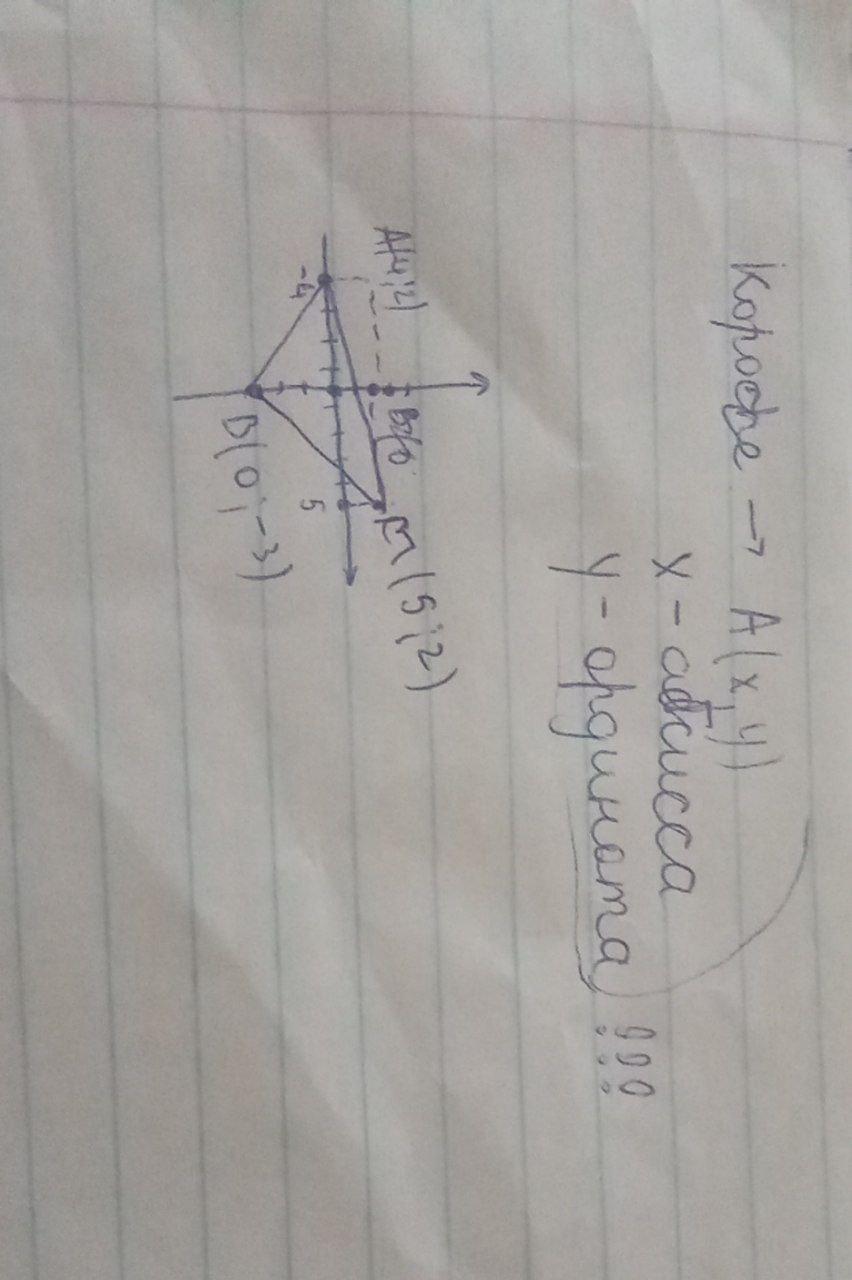 Короче → A(x, y)
x - абсцисса
y - ордината !!!
A(-4;2)
B(5;2)
-4
5
D(0;-3)